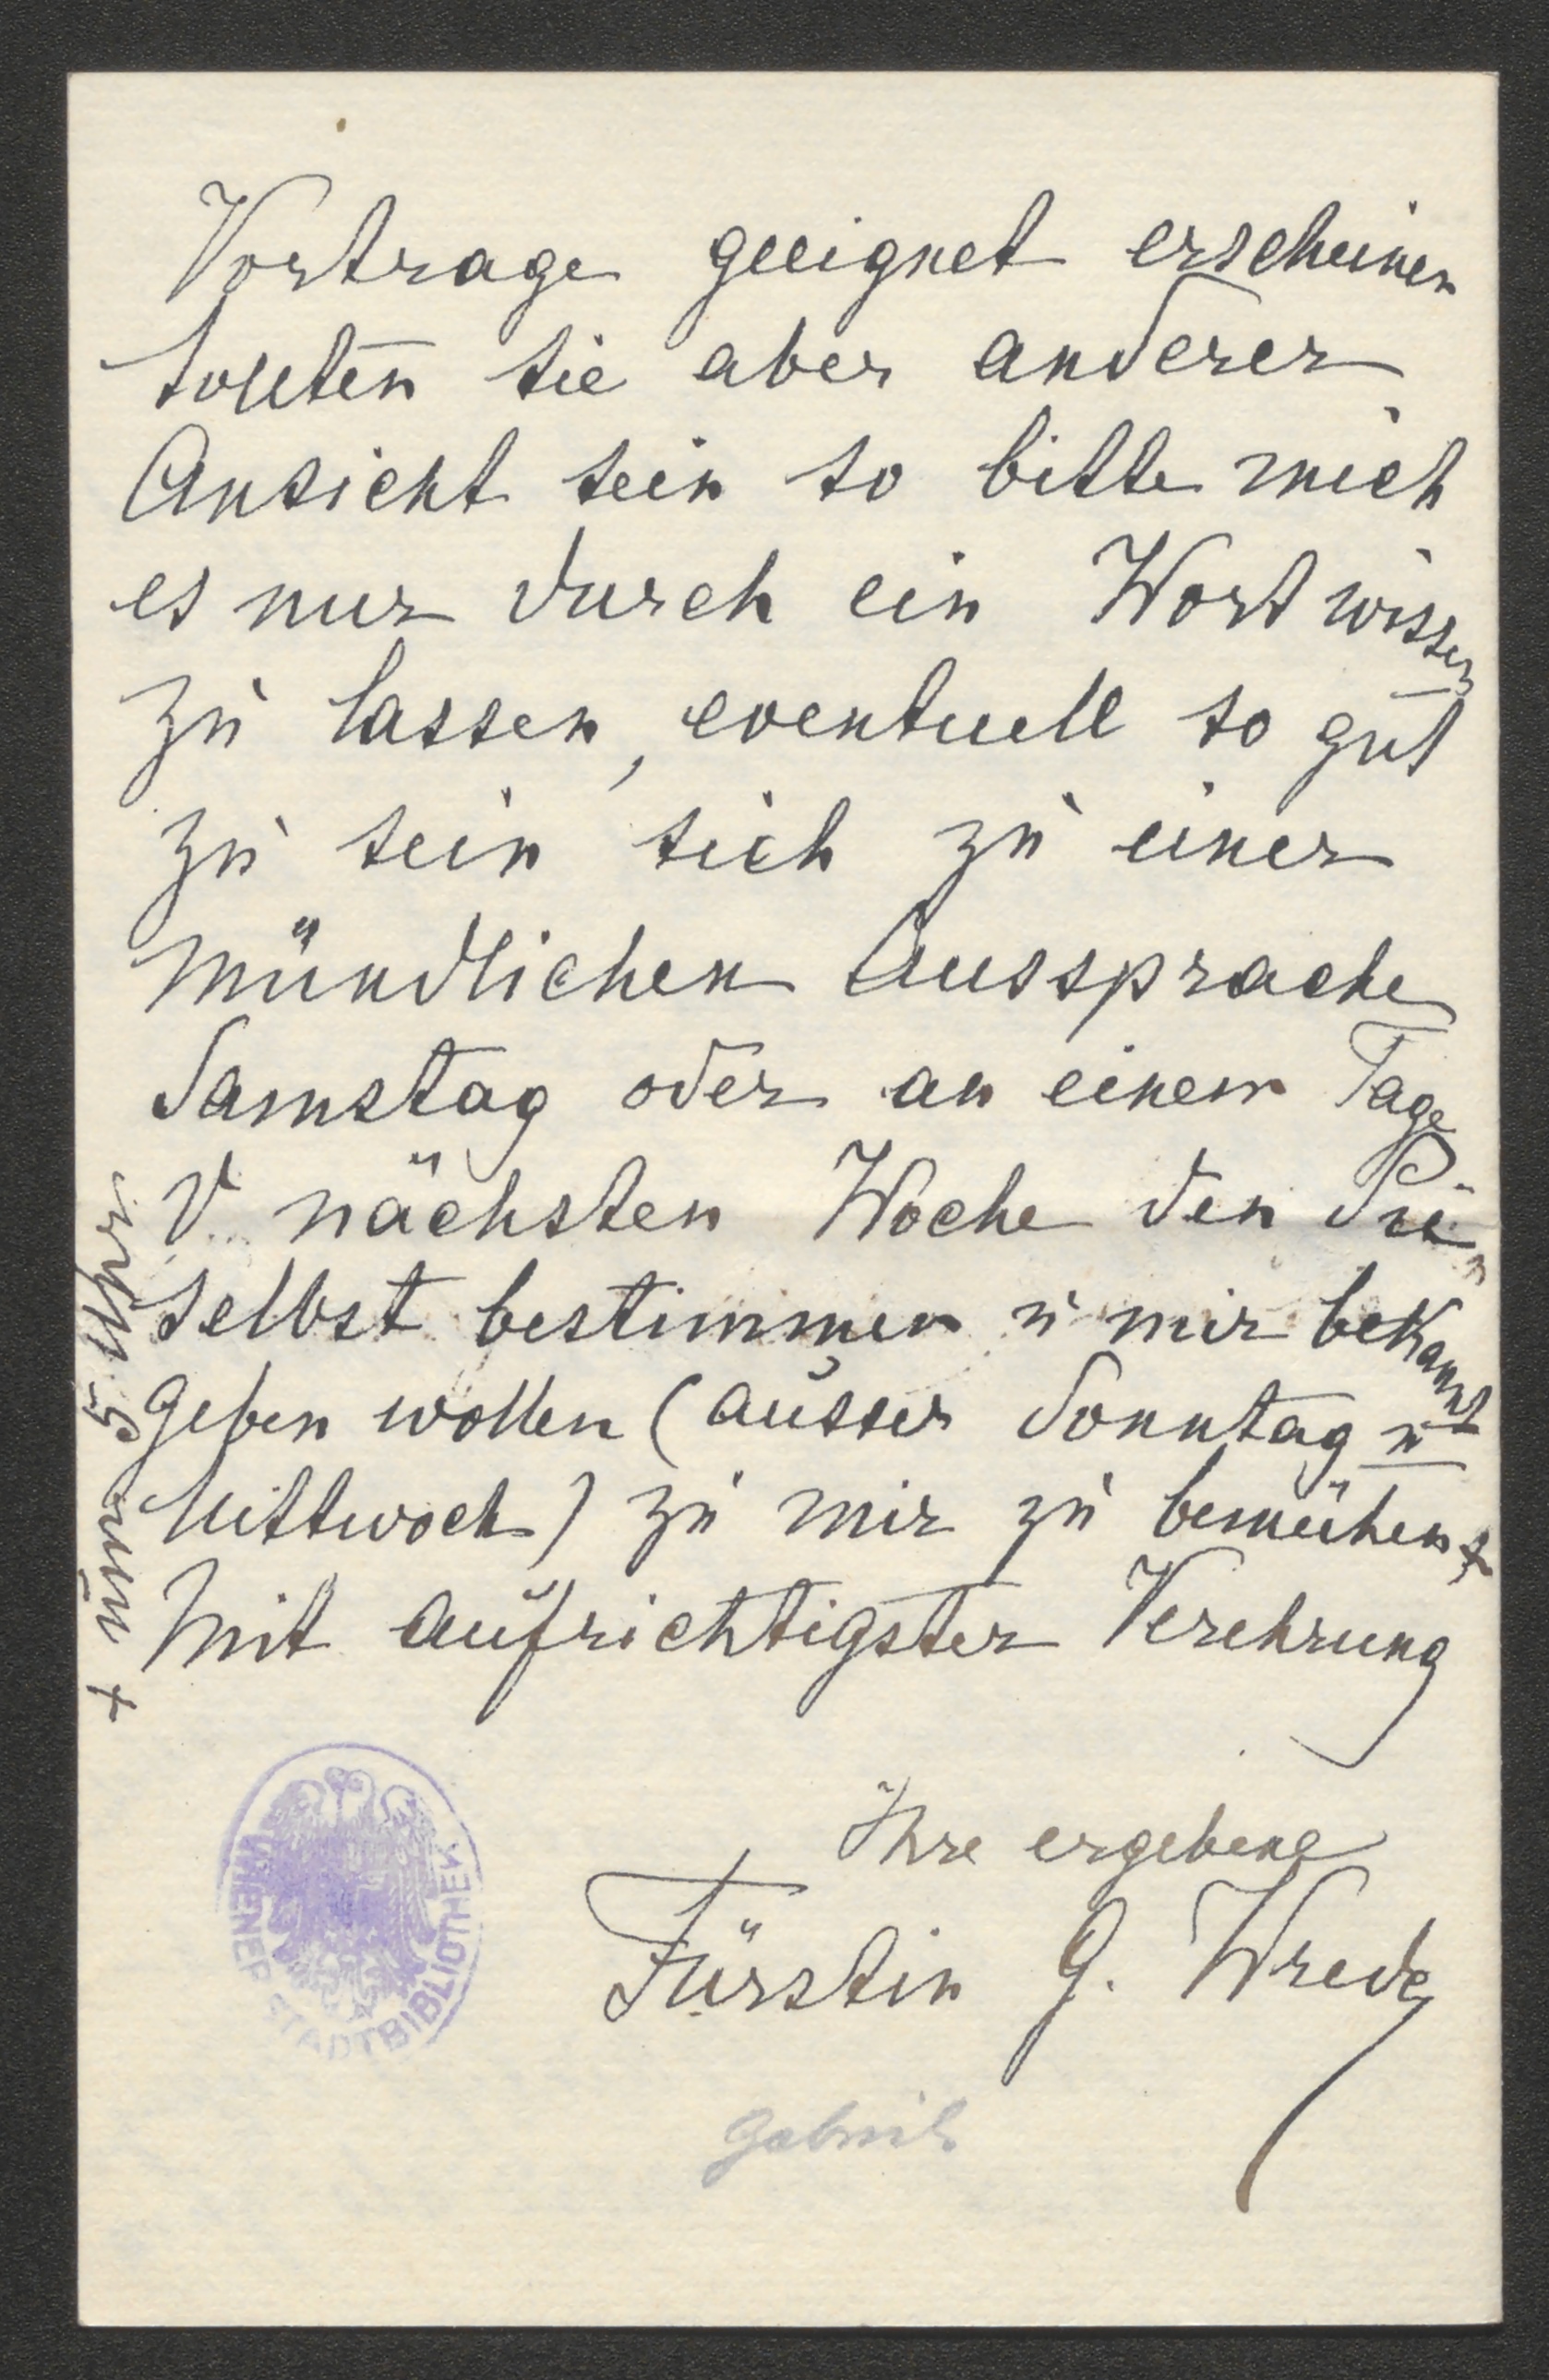 Vortrage geeignet erscheinen
sollten sie aber anderer
Ansicht sein so bitte mich
es nur durch ein Wort wissen
zu lassen, eventuell so gut
zu sein sich zu einer
mündlichen Aussprache
Samstag oder an einem Tage
d. nächsten Woche den Sie
selbst bestimmen u mir bekannt
geben wollen (ausser Sonntag u
Mittwoch) zu mir zu bemühen +
Mit aufrichtigster Verehrung
Ihre ergebene
Fürstin G. Wrede
Gabriele
+ um 5 Uhr
WIENER STADTBIBLIOTHEK